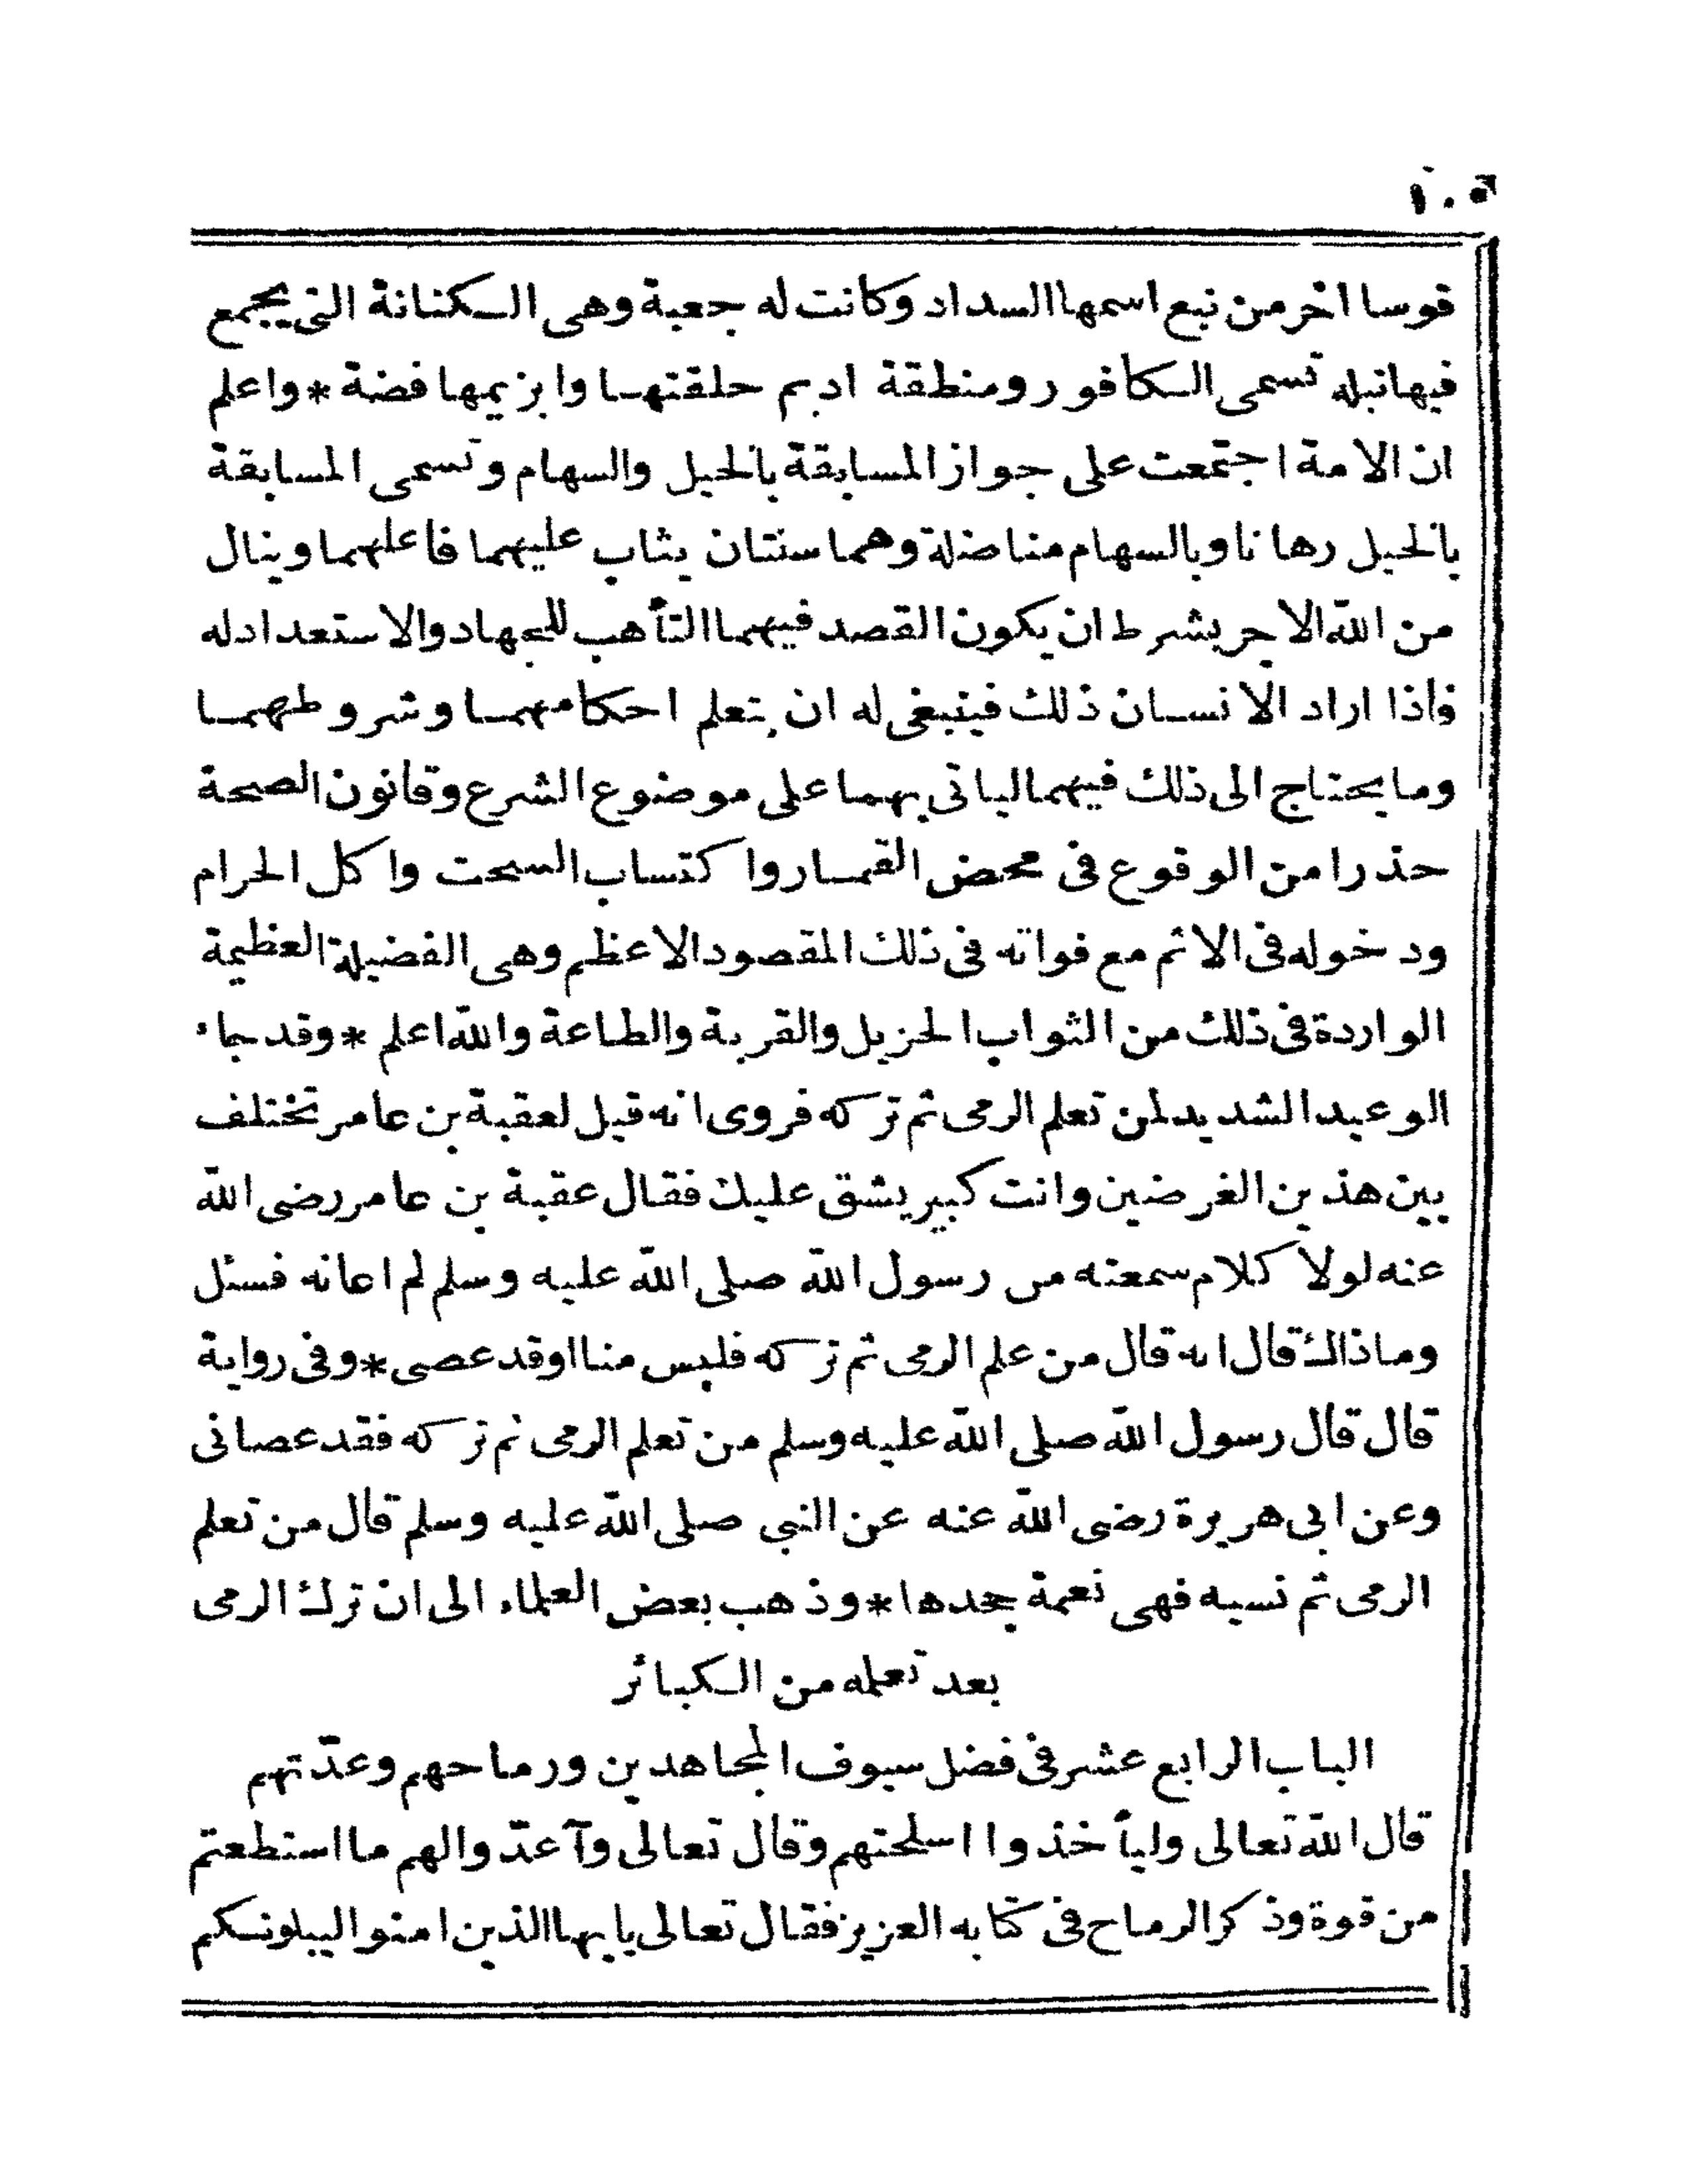 قوسا اخر من نبع اسمها السداد وكانت له جعبة وهى الكنانة التى يجمع
فيها نبله تسمى الكافور ومنطقة اديم حلقتها وابزيمها فضة * واعلم
ان الامة اجتمعت على جواز المسابقة بالخيل والسهام وتسمى المسابقة
بالخيل رهانا وبالسهام مناضلة وهما سنتان يثاب عليهما فاعلهما وينال
من الله الاجر بشرط ان يكون القصد فيهما التأهب للجهاد والاستعداد له
فاذا اراد الانسان ذلك فينبغى له ان يتعلم احكامهما وشروطهما
وما يحتاج الى ذلك فيهما لياتى بهما على موضوع الشرع وقانون الصحة
حذرا من الوقوع فى محض القمار واكتساب السحت واكل الحرام
ودخوله فى الاثم مع فواته فى ذلك المقصود الاعظم وهى الفضيلة العظيمة
الواردة فى ذلك من الثواب الجزيل والقربة والطاعة والله اعلم * وقد جاء
الوعيد الشديد لمن تعلم الرمى ثم تركه فروى انه قيل لعقبة بن عامر تختلف
بين هذين الغرضين وانت كبير يشق عليك فقال عقبة بن عامر رضى الله
عنه لولا كلام سمعته من رسول الله صلى الله عليه وسلم لم اعانه فسئل
وماذاك قال انه قال من علم الرمى ثم تركه فليس منا اوقد عصى * وفى رواية
قال قال رسول الله صلى الله عليه وسلم من تعلم الرمى ثم تركه فقد عصانى
وعن ابى هريرة رضى الله عنه عن النبي صلى الله عليه وسلم قال من تعلم
الرمى ثم نسيه فهى نعمة جحدها * وذهب بعض العلماء الى ان ترك الرمى
بعد تعلمه من الكبائر
الباب الرابع عشر فى فضل سيوف المجاهدين ورماحهم وعدّتهم
قال الله تعالى وليأخذوا اسلحتهم وقال تعالى وآعدّوا لهم ما استطعتم
من قوة وذكر الرماح فى كتابه العزيز فقال تعالى يايها الذين امنوا ليبلونكم